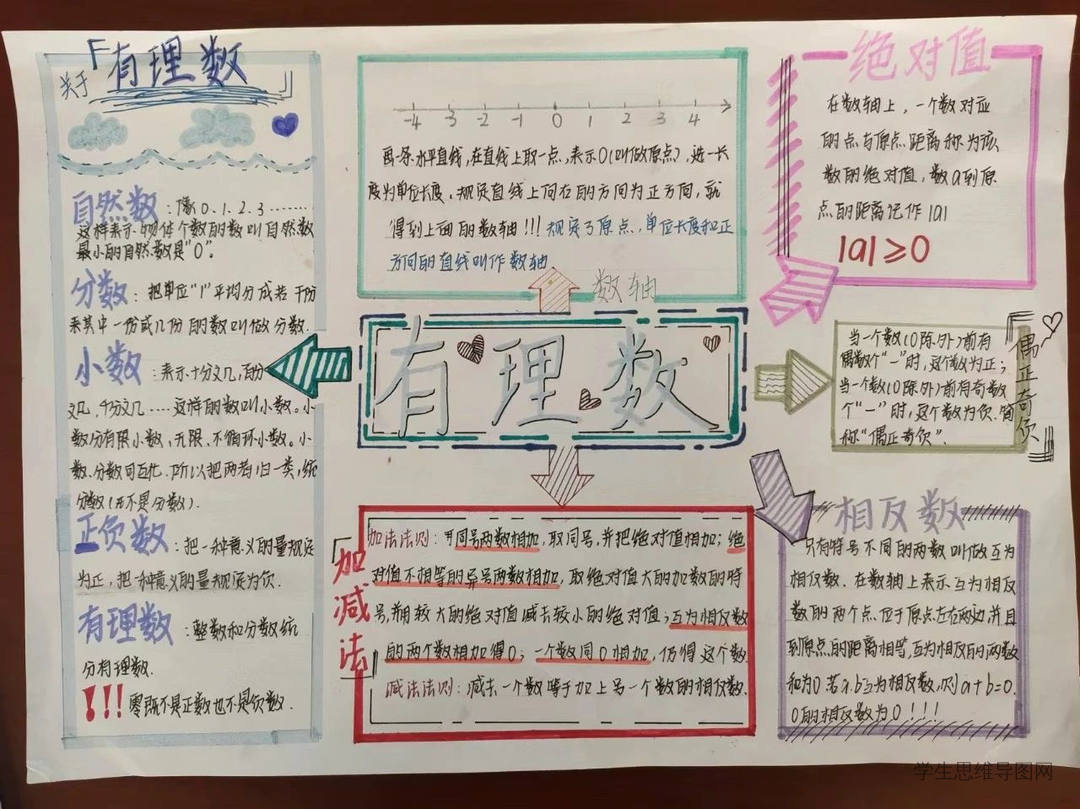 关于「有理数」
自然数：像0.1.2.3………
这样表示物体个数的数叫自然数
最小的自然数是"0"。
分数：把单位"1"平均分成若干份
表其中一份或几份的数叫做分数.
小数：表示十分之几,百分
之几,千分之几……这样的数叫小数。小
数分有限小数,无限、不循环小数。小
数.分数可互化.所以把两者归一类,统
分数(π不是分数).
正负数：把一种意义的量规定
为正,把一种意义的量规深为负.
有理数：整数和分数统
分有理数.
!!!零既不是正数也不是负数.
-4 -3 -2 -1 0 1 2 3 4
画一条水平直线,在直线上取一点,表示0(叫做原点),选一长
度为单位长度,规定直线上向右的方向为正方向,就
得到上面的数轴!!!规定了原点,单位长度和正
方向的直线叫作数轴
数轴
有理数
「加减法」
加法法则：同号两数相加,取同号,并把绝对值相加;绝
对值不相等的异号两数相加,取绝对值大的加数的符
号,用较大的绝对值减去较小的绝对值;互为相反数
的两个数相加得0;一个数同0相加,仍得这个数.
减法法则：减去一个数等于加上另一个数的相反数.
绝对值
在数轴上,一个数对应
的点与原点距离称为该
数的绝对值,数a到原
点的距离记作|a|
|a|≥0
当一个数(0除外)前有
偶数个"一"时,这个数为正;
当一个数(0除外)前有奇数
个"一"时,这个数为负.简
称"偶正奇负".
「偶正奇负」
相反数
只有符号不同的两数叫做互为
相反数.在数轴上表示互为相反
数的两个点位于原点左右两边并且
到原点的距离相等,互为相反的两数
和为0若a.b互为相反数,则a+b=0.
0的相反数为0!!!
学生思维导图网